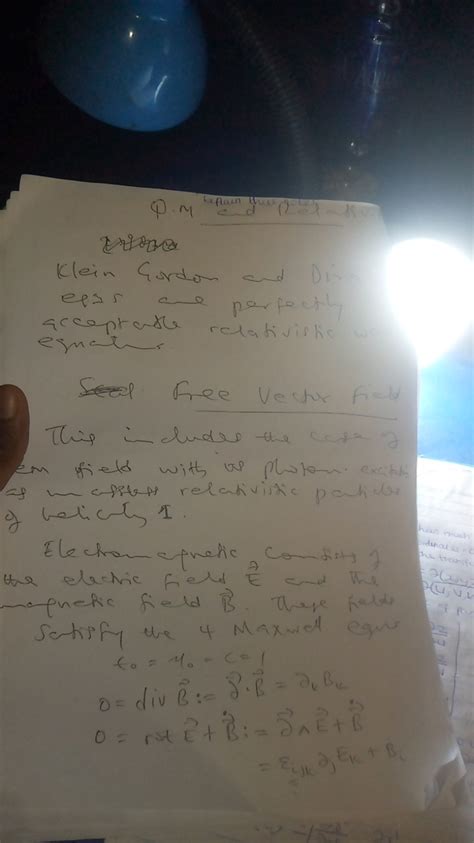 Explain these notes
Q.M and Relativ
Klein Gordon and Dira
eqs are perfectly
acceptable relativistic wa
equations
Free Vector Field
This includes the case of
em field with its photon excitati
as massless relativistic particles
of helicity 1.
Electromagnetic consists of
the electric field E⃗ and the
magnetic field B⃗. These fields
satisfy the 4 Maxwell eqns
ε₀ = μ₀ = c = 1
0 = div B⃗ := ∂⃗·B⃗ = ∂ₖBₖ
0 = rot E⃗ + Ḃ⃗ := ∂⃗ ∧ E⃗ + Ḃ⃗
= εᵢⱼₖ ∂ⱼEₖ + Ḃᵢ